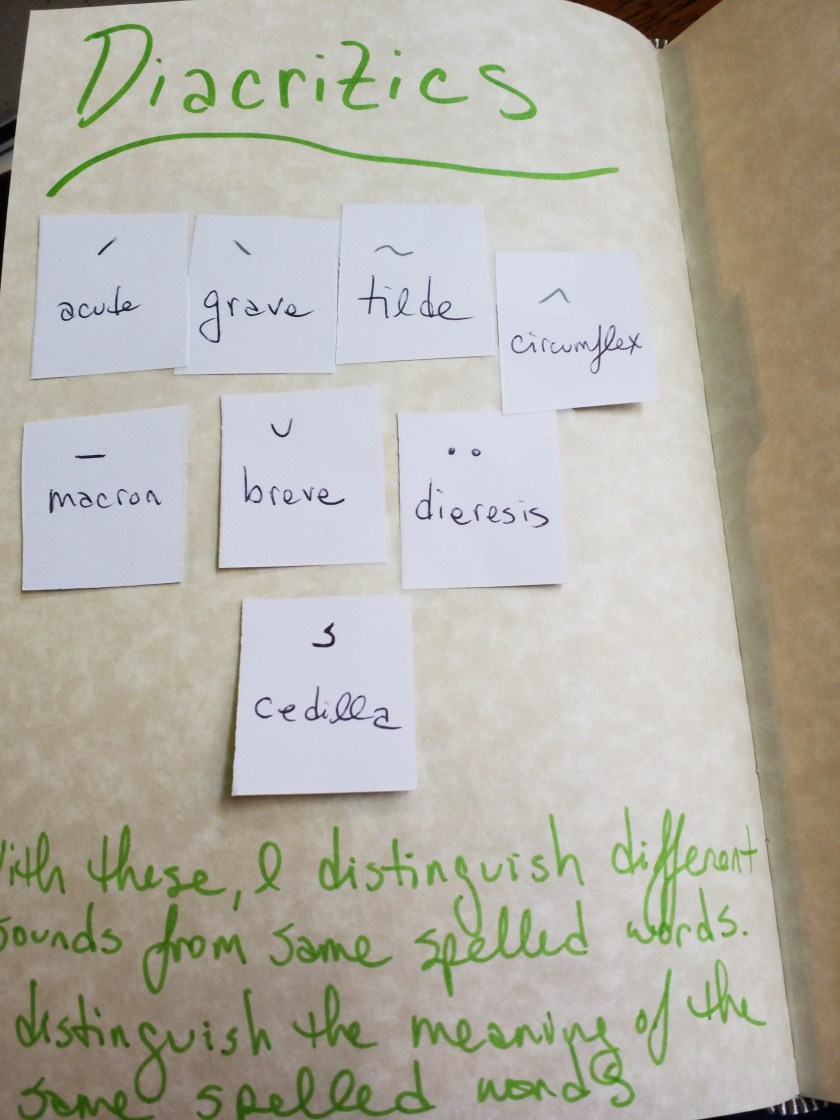 Diacritics
´ ` ~ ^
acute grave tilde circumflex
¯ ˘ ¨
macron breve dieresis
¸
cedilla
With these, I distinguish different
sounds from same spelled words.
distinguish the meaning of the
same spelled words